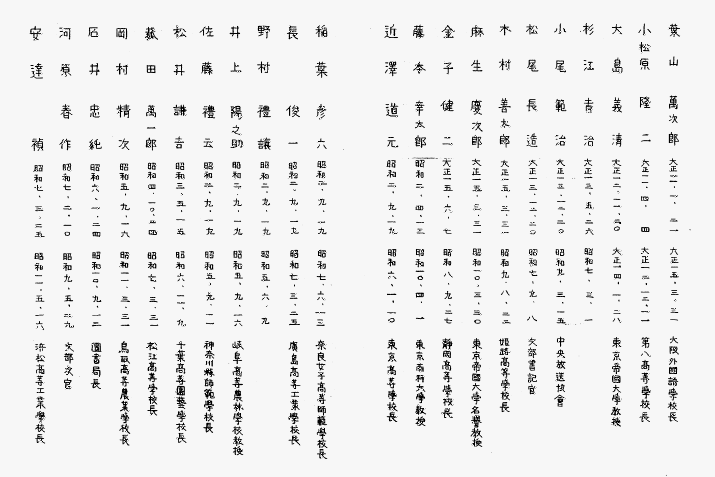 葉山萬次郎 大正一二、一、二一 大正一五、三、三一 大阪外國語學校長
小松原隆二 大正一二、四、四 大正一三、一二、二一 第八高等學校長
大島義清 大正一二、一一、二〇 大正一四、一、二八 東京帝國大學敎授
杉江青治 大正一三、五、二六 昭和七、三、一
小尾範治 大正一三、一二、二〇 昭和九、三、一五 中央放送協會
松尾長造 大正一三、一二、二〇 昭和七、八、八 文部書記官
木村善太郎 大正一五、三、三一 昭和九、八、二二 姫路高等學校長
麻生慶次郎 大正一五、三、三一 昭和一〇、三、三〇 東京帝國大學名譽敎授
金子健二 大正一五、六、七 昭和八、九、二七 靜岡高等學校長
藤本幸太郎 昭和二、四、一 昭和一〇、四、一 東京商科大學敎授
近澤道元 昭和二、九、一九 昭和六、一、一〇 東京高等學校長
稻葉彦六 昭和二、九、一九 昭和七、六、一三 奈良女子高等師範學校長
長俊一 昭和二、九、一九 昭和七、三、二五 廣島高等工業學校長
野村禮讓 昭和二、九、一九 昭和五、六、九
井上陽之助 昭和二、九、一九 昭和五、九、一六 岐阜高等農林學校敎授
佐藤禮云 昭和二、九、一九 昭和五、九、一一 神奈川縣師範學校長
松井謙吉 昭和三、五、一五 昭和六、一一、九 千葉高等園藝學校長
菰田萬一郎 昭和四、一〇、二四 昭和七、三、三一 松江高等學校長
岡村精次 昭和五、九、一六 昭和一一、三、三一 鳥取高等農業學校長
石井忠純 昭和六、一、二四 昭和一〇、九、一二 圖書局長
河原春作 昭和七、二、一〇 昭和九、五、二九 文部次官
安達禎 昭和七、三、二五 昭和一一、五、一六 濱松高等工業學校長